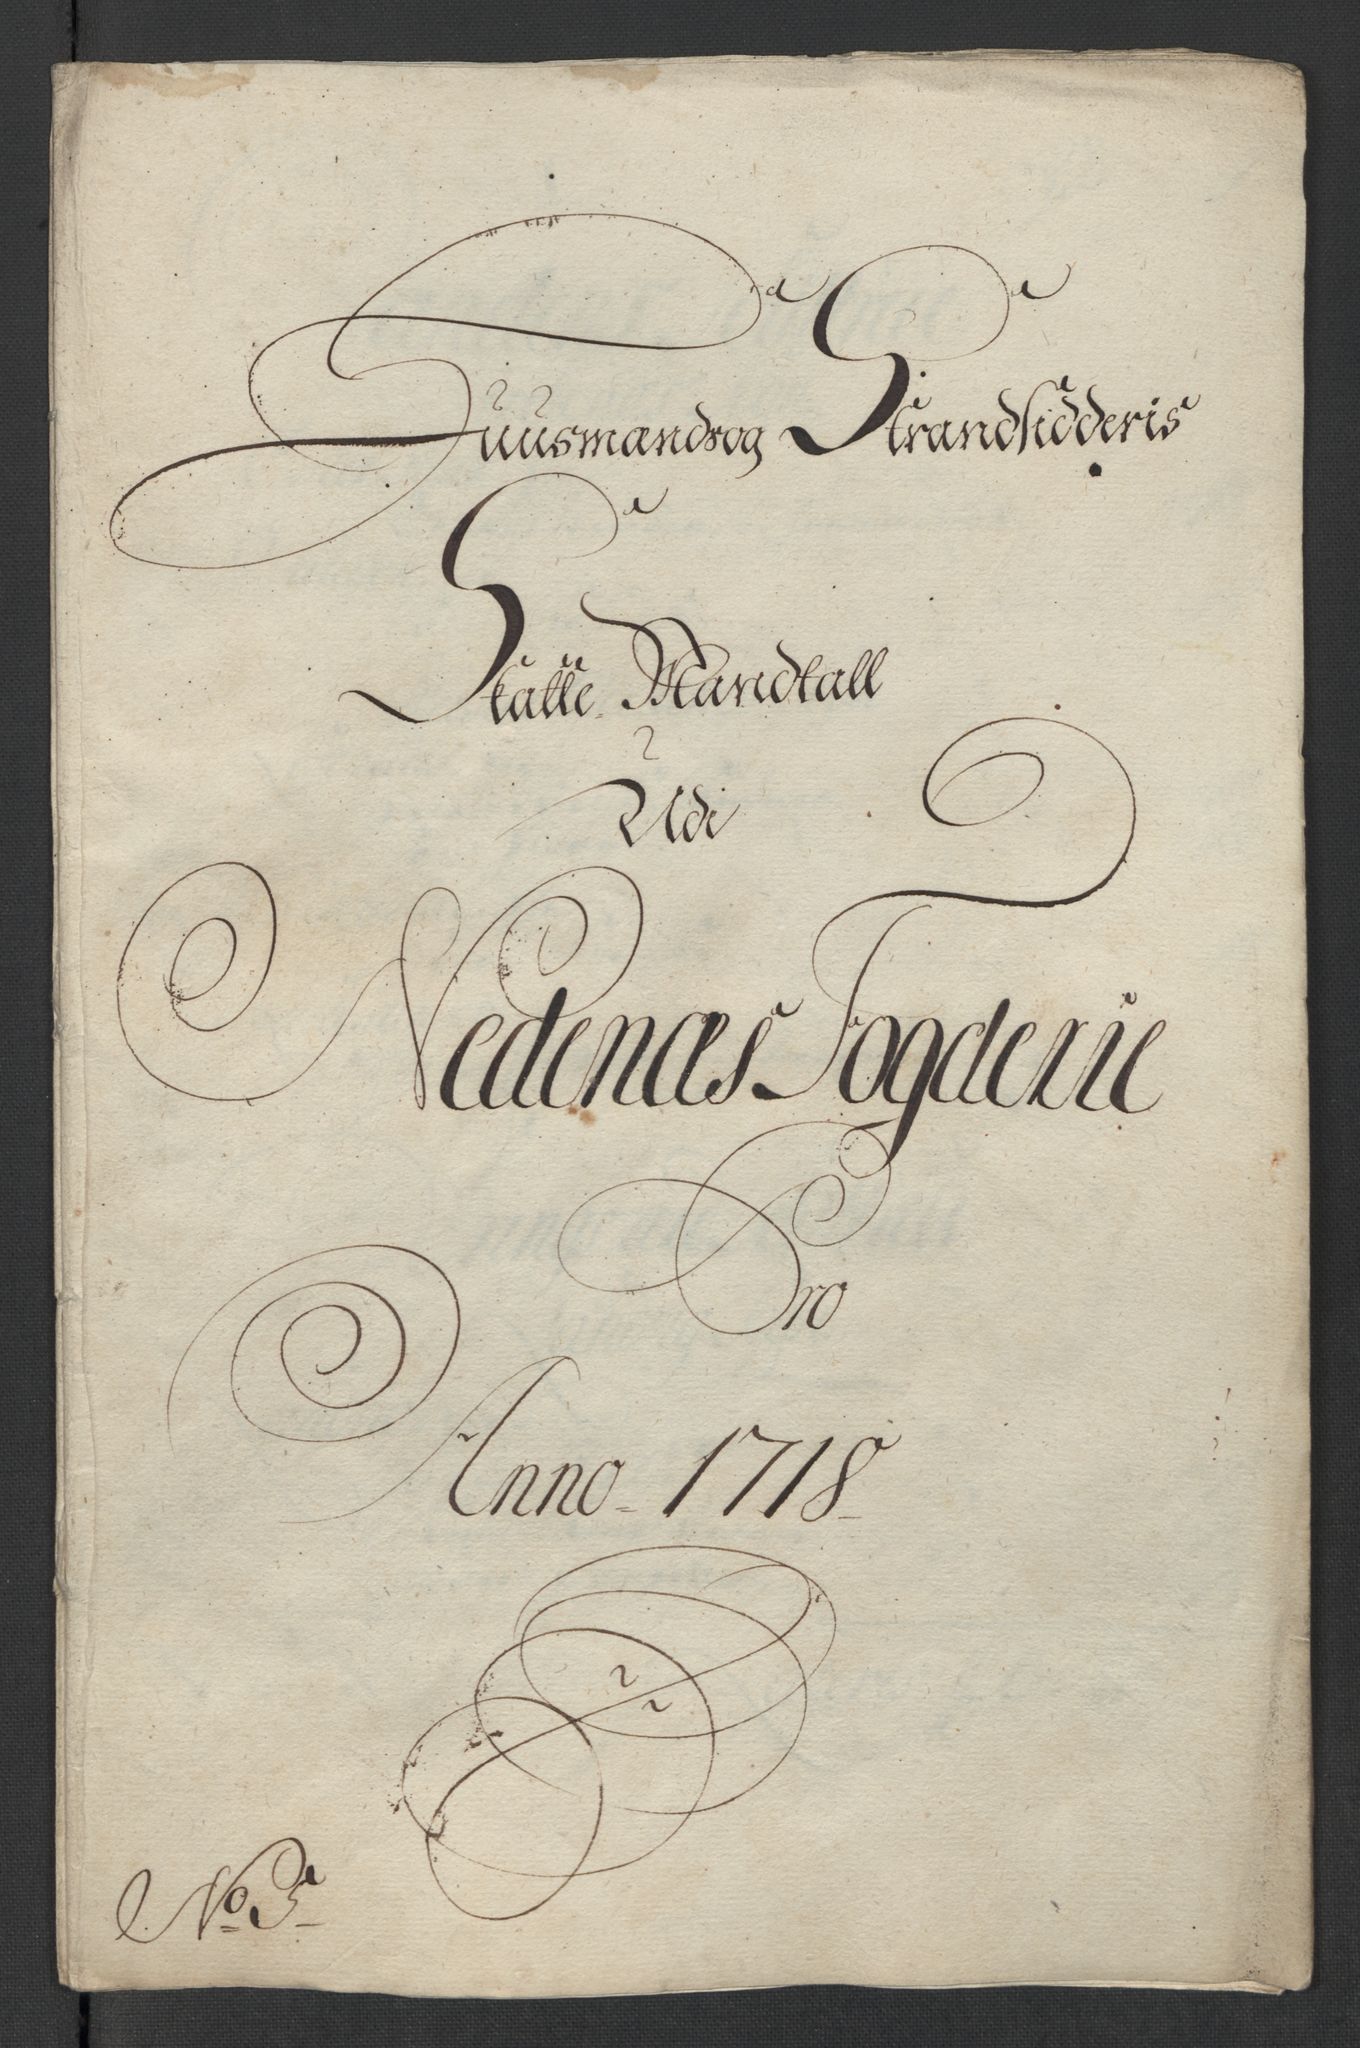 Huusmænds og Strandsidderis
Skatte Mandtall
Udi
Nedenæs Fogderie
Pro
Anno 1718
No. 5